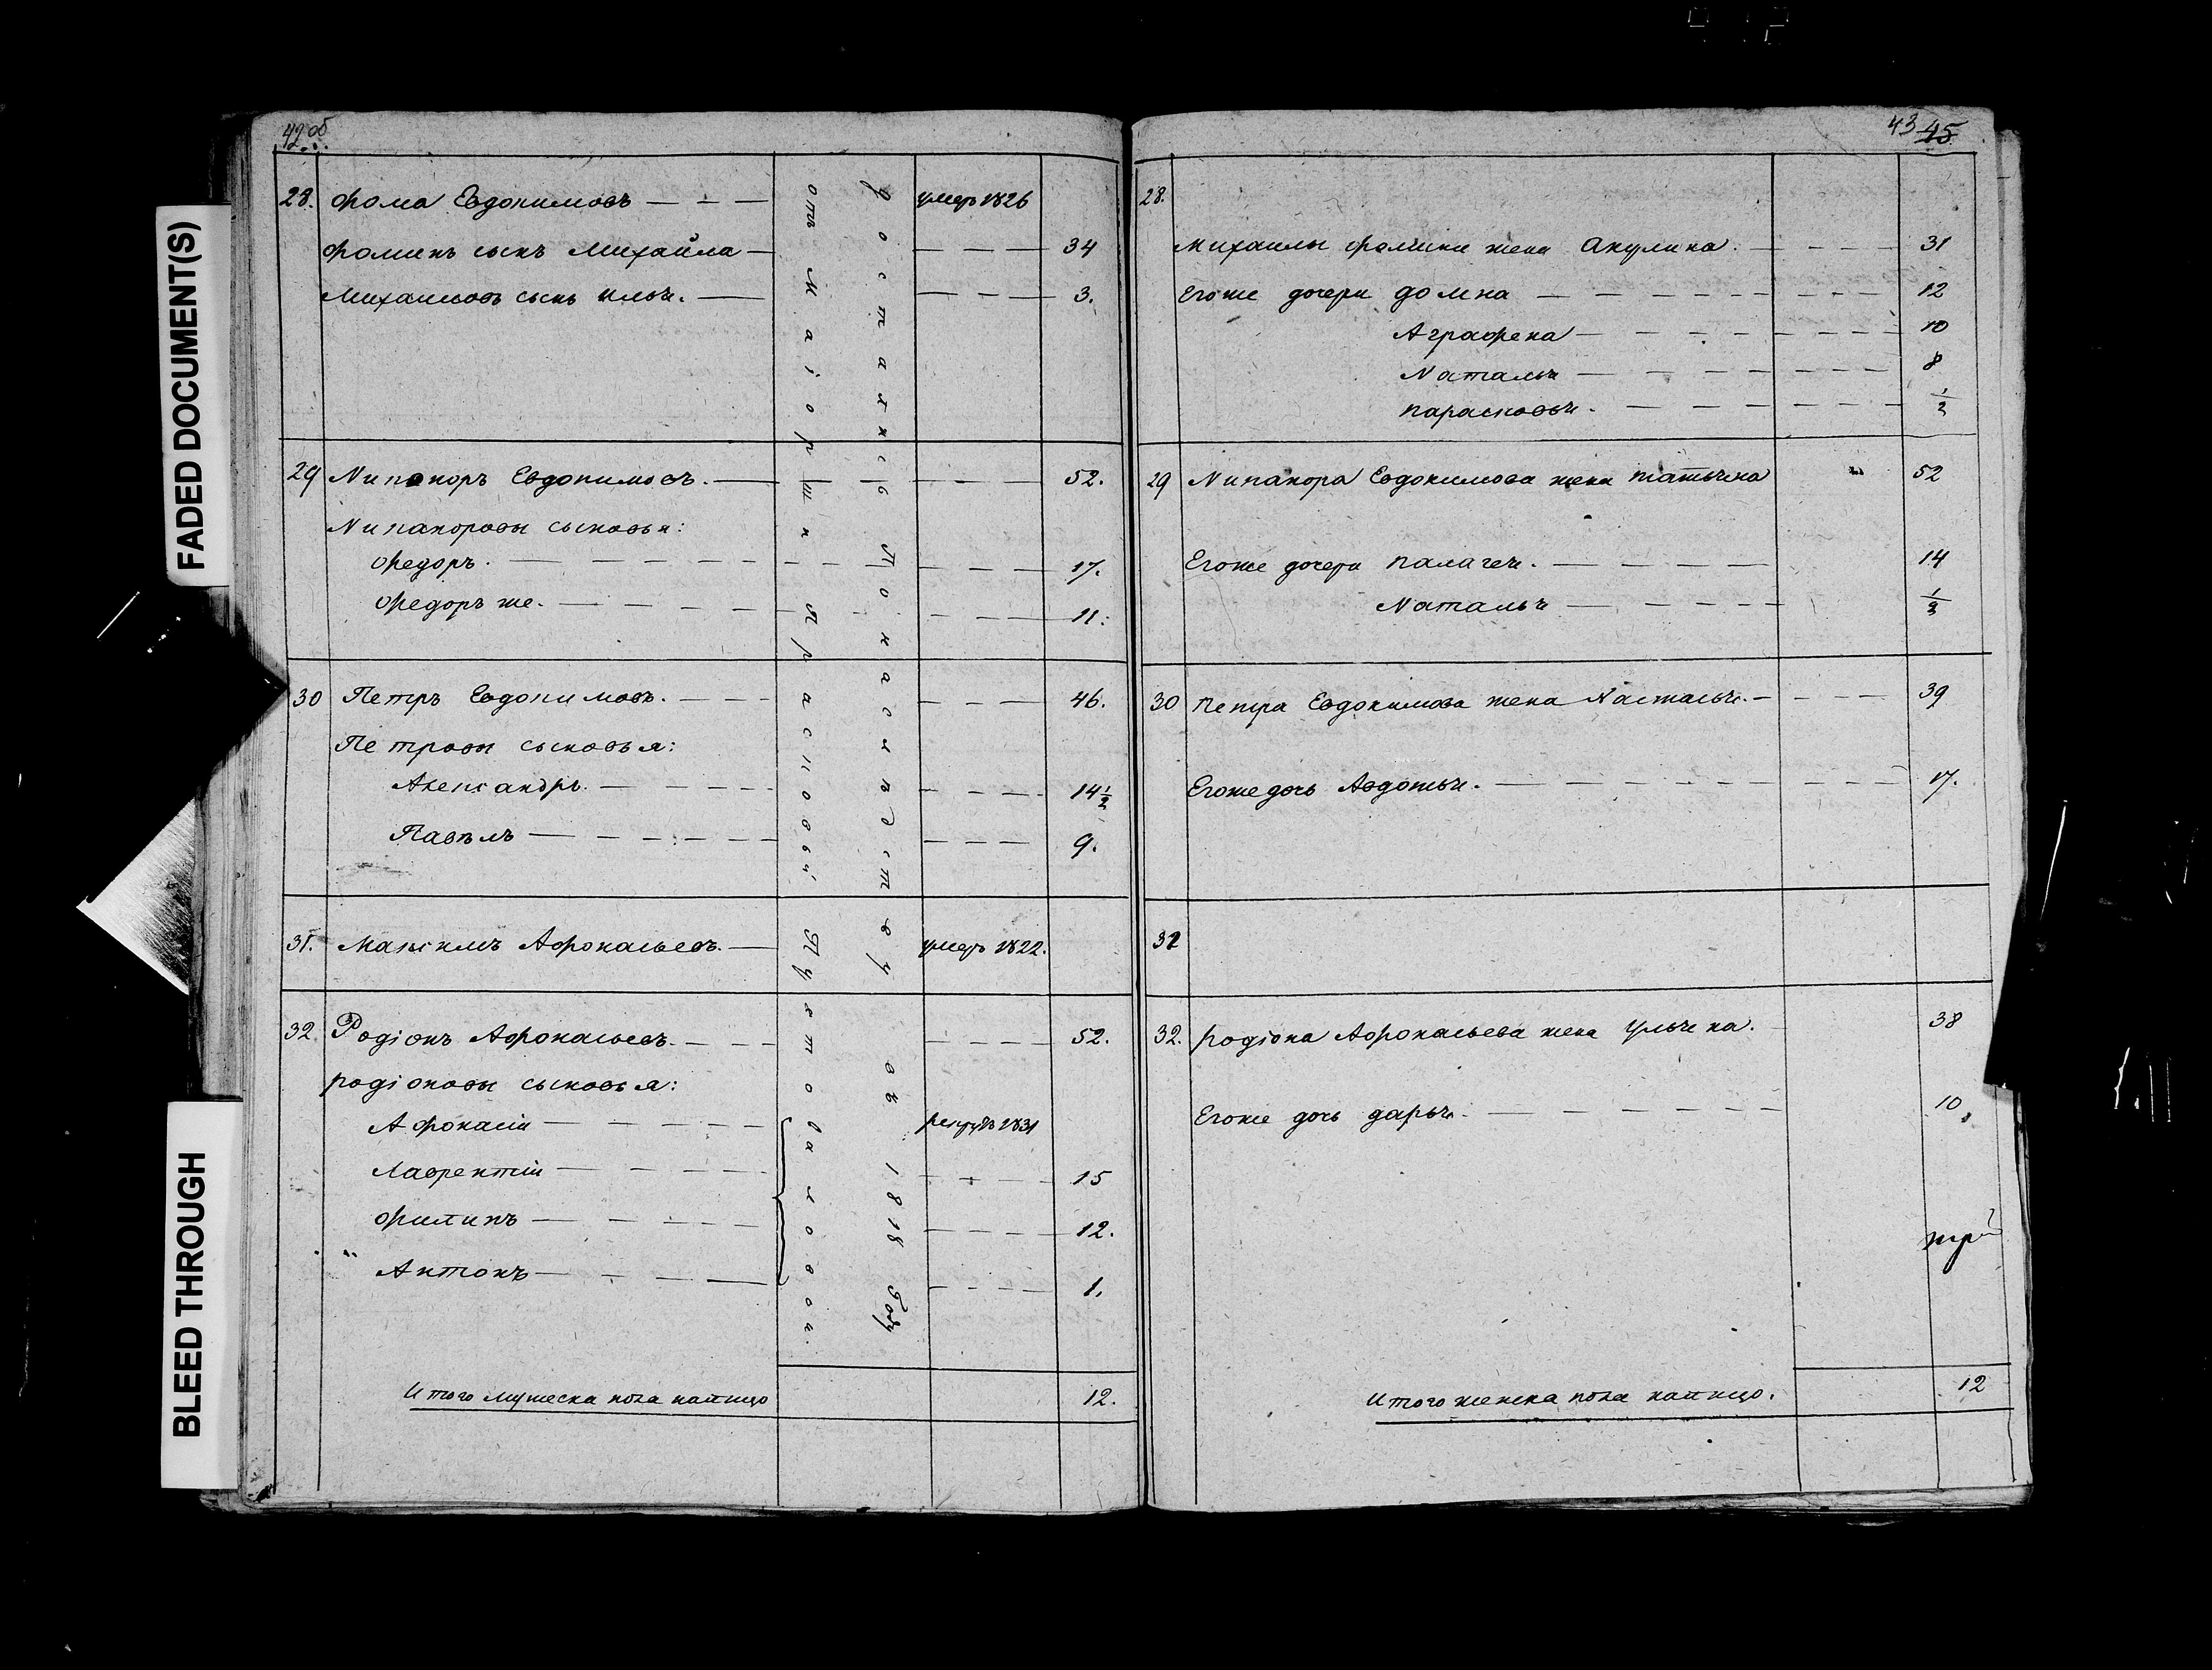 42 об
28. Фома Евдокимовъ умеръ 1826
Фоминъ сынъ Михайла 34
Михаиловъ сынъ Илья. 3.
29 Никаноръ Евдокимовъ. 52.
Никаноровы сыновья:
Федоръ. 17.
Федоръ же. 11.
30 Петръ Евдокимовъ. 46.
Петровы сыновья:
Александръ. 14 1/2
Павелъ 9.
31. Максимъ Афонасьевъ. умеръ 1822.
32 Родіонъ Афонасьевъ. 52.
родіоновы сыновья:
Афонасій рекрутъ 1831
Лаврентій 15
Филипъ 12.
Антонъ 1.
Итого мужеска пола налицо 12.
отъ Маіорши Прасковьи Пустоваловой.
достались Помѣстью
въ 1818 Году
43 45
28.
Михаилы Фомина жена Акулина. 31
Егоже дочери домна 12
Аграфена 10
Наталья 8
парасковья. 1/2
29 Никанора Евдокимова жена татьяна 52
Егоже дочери палагея. 14
Наталья 1/2
30 Петра Евдокимова жена Настасья. 39
Егоже дочь Авдотья. 17.
31
32. родіона Афонасьева жена Ульяна. 38
Егоже дочь дарья. 10
Итого женска пола налицо. 12
FADED DOCUMENT(S)
BLEED THROUGH